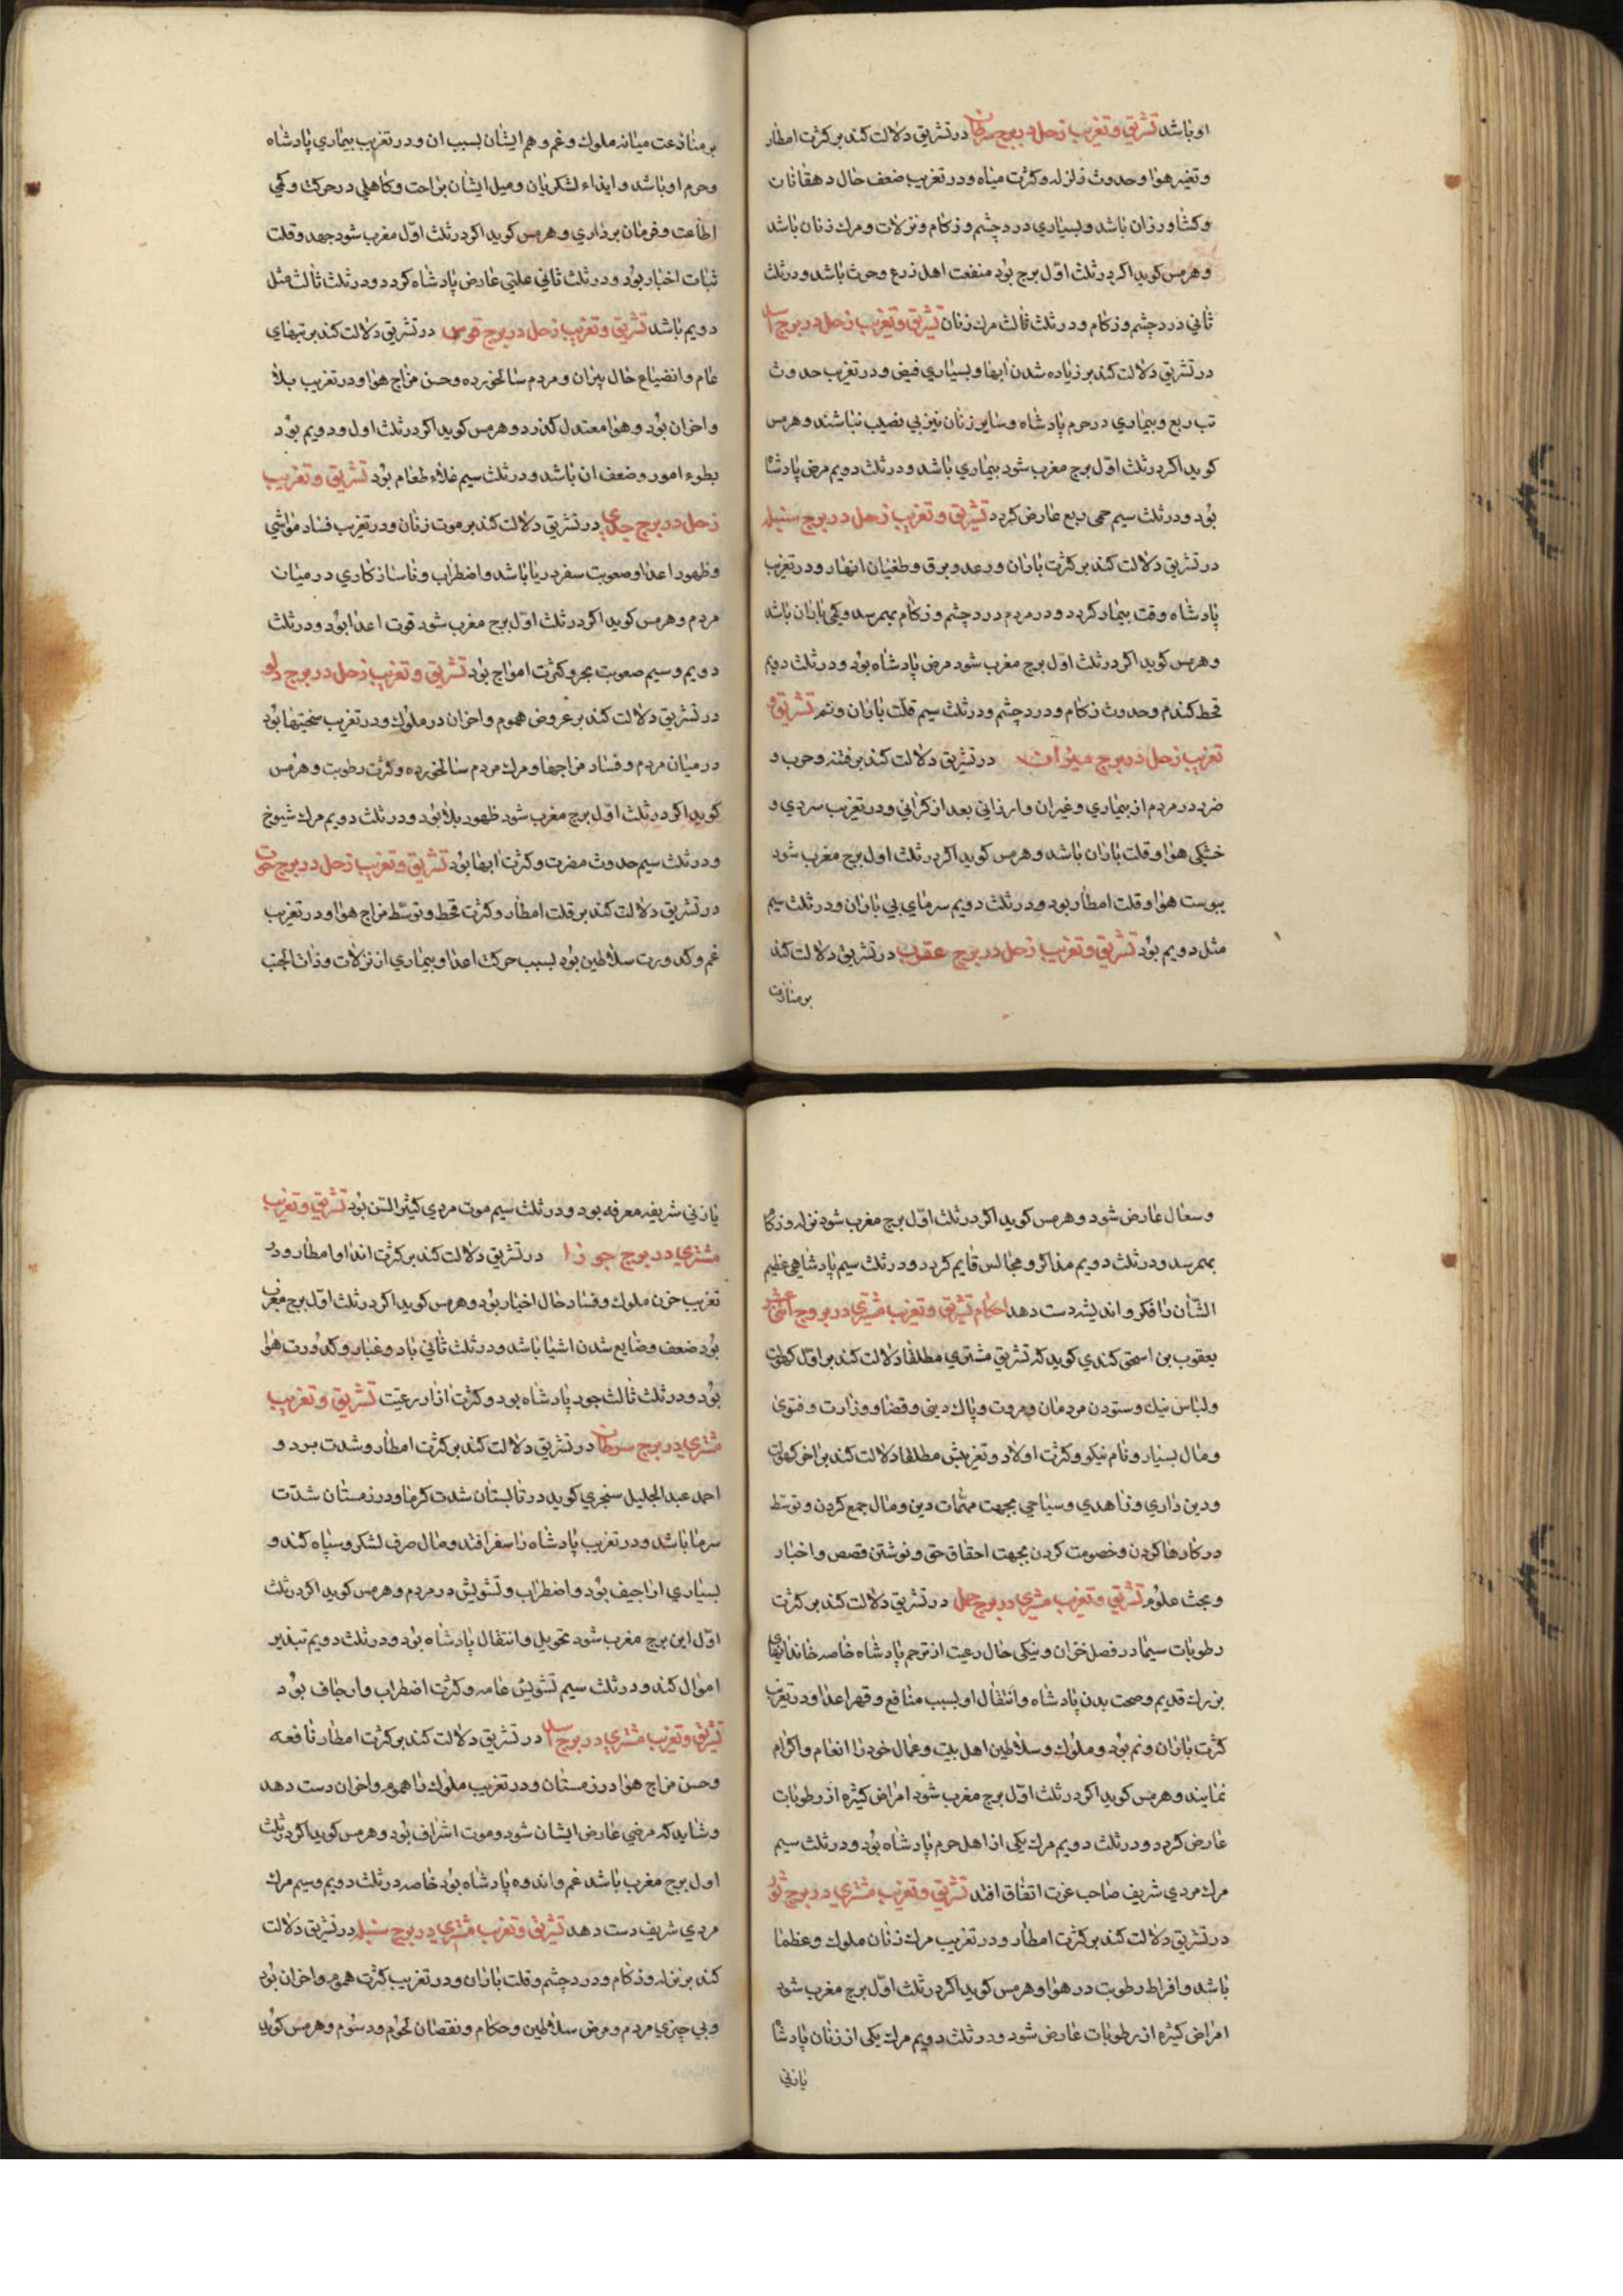 او باشد تشریق و تغریب زحل در برج سرطان در تشریق دلالت کند بر کثرت امطار
و تغیر هوا و حدوث زلزله و کثرت میاه و در تغریب ضعف حال دهقانان
و کشاورزان باشد و بسیاری درد چشم و زکام و نزلات و مرك زنان باشد
و هرمس کوید اکر در ثلث اوّل برج بوَد منفعت اهل زرع و حرث باشد و در ثلث
ثانی درد چشم و زکام و در ثلث ثالث مرك زنان تشریق و تغریب زحل در برج اسد
در تشریق دلالت کند بر زیاده شدن ابها و بسیاری فیض و در تغریب حدوث
تب ربع و بیماری در حرم پادشاه و سایر زنان نیز بی نصیب نباشند و هرمس
کوید اکر در ثلث اوّل برج مغرب شود بیماری باشد و در ثلث دویم مرض پادشاه
بوَد و در ثلث سیم حمی ربع عارض کردد تشریق و تغریب زحل در برج سنبله
در تشریق دلالت کند بر کثرت باران و رعد و برق و طغیان انهار و در تغریب
پادشاه وقت بیمار کردد و در مردم درد چشم و زکام بهمرسد و کمی باران باشد
و هرمس کوید اکر در ثلث اوّل برج مغرب شود مرض پادشاه بوَد و در ثلث دویم
قحط کندم و حدوث زکام و درد چشم و در ثلث سیم قلّت باران و نم تشریق و
تغریب زحل در برج میزان در تشریق دلالت کند بر فتنه و حرب و
ضرر در مردم از بیماری و غیران و ارزانی بعد از کرانی و در تغریب سردی و
خشکی هوا و قلت باران باشد و هرمس کوید اکر در ثلث اول برج مغرب شود
یبوست هوا و قلت امطار بود و در ثلث دویم سرمای بی باران و در ثلث سیم
مثل دویم بوَد تشریق و تغریب زحل در برج عقرب در تشریق دلالت کند
بر منازعت
بر منازعت میانه ملوك و غم و هم ایشان بسبب ان و در تغریب بیماری پادشاه
و حرم او باشد و ایذاء لشکریان و میل ایشان براحت و کاهلی در حرکت و کمی
اطاعت و فرمان برداری و هرمس کوید اکر در ثلث اوّل مغرب شود جهد و قلت
ثبات اخبار بوَد و در ثلث ثانی علتی عارض پادشاه کردد و در ثلث ثالث مثل
دویم باشد تشریق و تغریب زحل در برج قوس در تشریق دلالت کند بر تبهای
عام و انضیاع حال پیران و مردم سالخورده و حسن مزاج هوا و در تغریب بلا
و احزان بوَد و هوا معتدل کذرد و هرمس کوید اکر در ثلث اول و دویم بوَد
بطوء امور و ضعف ان باشد و در ثلث سیم غلاء طعام بوَد تشریق و تغریب
زحل در برج جدی در تشریق دلالت کند بر موت زنان و در تغریب فساد مواشی
و ظهور اعدا و صعوبت سفر دریا باشد و اضطراب و ناسازکاری در میان
مردم و هرمس کوید اکر در ثلث اوّل برج مغرب شود قوت اعدا بوَد و در ثلث
دویم و سیم صعوبت بحر و کثرت امواج بوَد تشریق و تغریب زحل در برج دلو
در تشریق دلالت کند بر عروض هموم و احزان در ملوك و در تغریب سختیها بوَد
در میان مردم و فساد مزاجها و مرك مردم سالخورده و کثرت رطوبت و هرمس
کوید اکر در ثلث اوّل برج مغرب شود ظهور بلا بوَد و در ثلث دویم مرك شیوخ
و در ثلث سیم حدوث مضرت و کثرت ابها بوَد تشریق و تغریب زحل در برج حوت
در تشریق دلالت کند بر قلت امطار و کثرت قحط و توسّط مزاج هوا و در تغریب
غم و کدورت سلاطین بوَد بسبب حرکت اعدا و بیماری از نزلات و ذات الجنب
و سعال عارض شود و هرمس کوید اکر در ثلث اوّل برج مغرب شود نزله و زکام
بهمرسد و در ثلث دویم مذاکر و مجالس قایم کردد و در ثلث سیم پادشاهی عظیم
الشّان را فکر و اندیشه دست دهد احکام تشریق و تغریب مشتری در بروج اثنی عشر
یعقوب بن اسحق کندی کوید که تشریق مشتری مطلقا دلالت کند بر اوّل کهولت
و لباس نیك و ستودن مردمان و مروت و پاك دینی و قضا و وزارت و فتوی
و مال بسیار و نام نیکو و کثرت اولاد و تغریبش مطلقا دلالت کند بر اخر کهولت
و دین داری و زاهدی و سیاحی بجهت مهمّات دین و مال جمع کردن و توسّط
در کارها کردن و خصومت کردن بجهت احقاق حق و نوشتن قصص و اخبار
و بحث علوم تشریق و تغریب مشتری در برج حمل در تشریق دلالت کند بر کثرت
رطوبات سیما در فصل خزان و نیکی حال رعیت از ترحم پادشاه خاصه خاندانهای
بزرك قدیم و صحت بدن پادشاه و انتقال او بسبب منافع و قهر اعدا و در تغریب
کثرت باران و نم بوَد و ملوك و سلاطین اهل بیت و عمال خود را انعام و اکرام
نمایند و هرمس کوید اکر در ثلث اوّل برج مغرب شود امراض کثیره از رطوبات
عارض کردد و در ثلث دویم مرك یکی از اهل حرم پادشاه بوَد و در ثلث سیم
مرك مردی شریف صاحب عزت اتفاق افتد تشریق و تغریب مشتری در برج ثور
در تشریق دلالت کند بر کثرت امطار و در تغریب مرك زنان ملوك و عظما
باشد و افراط رطوبت در هوا و هرمس کوید اکر در ثلث اوّل برج مغرب شود
امراض کثیره از رطوبات عارض شود و در ثلث دویم مرك یکی از زنان پادشاه
یا زنی
یا زنی شریفه معرفه بود و در ثلث سیم موت مردی کثیر السّن بوَد تشریق و تغریب
مشتری در برج جوزا در تشریق دلالت کند بر کثرت اندا و امطار و در
تغریب حزن ملوك و فساد حال اخیار بوَد و هرمس کوید اکر در ثلث اوّل برج مغرب
بوَد ضعف و ضایع شدن اشیا باشد و در ثلث ثانی باد و غبار و کدورت هوا
بوَد و در ثلث ثالث جود پادشاه بود و کثرت ازار رعیّت تشریق و تغریب
مشتری در برج سرطان در تشریق دلالت کند بر کثرت امطار و شدت برد و
احمد عبد الجلیل سنجری کوید در تابستان شدت کرما و در زمستان شدّت
سرما باشد و در تغریب پادشاه را سفر افتد و مال صرف لشکر و سپاه کند و
بسیاری اراجیف بوَد و اضطراب و تشویش در مردم و هرمس کوید اکر در ثلث
اوّل این برج مغرب شود تحویل و انتقال پادشاه بوَد و در ثلث دویم تبذیر
اموال کند و در ثلث سیم تشویش عامه و کثرت اضطراب و ارجاف بوَد
تشریق و تغریب مشتری در برج اسد در تشریق دلالت کند بر کثرت امطار نافعه
و حسن مزاج هوا در زمستان و در تغریب ملوك را هموم و احزان دست دهد
و شاید که مرضی عارض ایشان شود و موت اشراف بوَد و هرمس کوید اکر در ثلث
اول برج مغرب باشد غم و اندوه پادشاه بوَد خاصه در ثلث دویم و سیم مرك
مردی شریف دست دهد تشریق و تغریب مشتری در برج سنبله در تشریق دلالت
کند بر نزله و زکام و درد چشم و قلت باران و در تغریب کثرت هموم و احزان بوَد
و بی چیزی مردم و مرض سلاطین و حکام و نقصان لحوم و دسوم و هرمس کوید